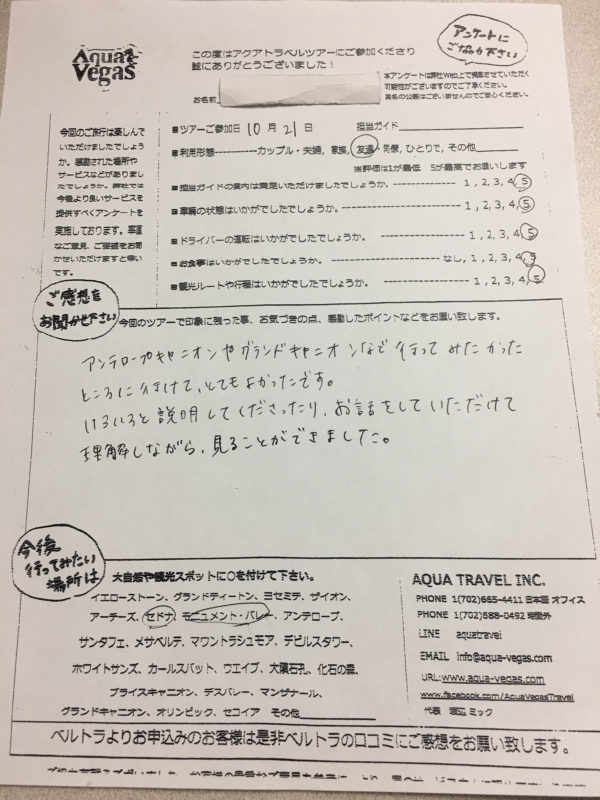 Aqua Vegas
この度はアクアトラベルツアーにご参加くださり
誠にありがとうございました！
アンケートに
ご協力下さい
本アンケートは弊社Web上で掲載させていただく
可能性がございますのでご了承ください。
実名の公表はございませんのでご安心ください。
お名前
今回のご旅行は楽しんで
いただけましたでしょう
か。感動された場所や
サービスなどがありまし
たでしょうか。弊社では
今後より良いサービスを
提供すべくアンケートを
実施しております。率直
なご意見、ご要望をお聞
かせいただけますと幸い
です。
■ツアーご参加日 10 月 21 日 担当ガイド
■利用形態-----------カップル・夫婦, 家族, 友達, 同僚, ひとりで, その他
※評価は1が最低 5が最高でお願いします
■担当ガイドの案内は満足いただけましたでしょうか。--------------- 1, 2, 3, 4, 5
■車輌の状態はいかがでしたでしょうか。--------------------------- 1, 2, 3, 4, 5
■ドライバーの運転はいかがでしたでしょうか。 1, 2, 3, 4, 5
■お食事はいかがでしたでしょうか。-------------------- なし, 1, 2, 3, 4, 5
■観光ルートや行程はいかがでしたでしょうか。--------------- 1, 2, 3, 4, 5
ご感想を
お聞かせ下さい
今回のツアーで印象に残った事、お気づきの点、感動したポイントなどをお願い致します。
アンテロープキャニオンやグランドキャニオンなど行ってみたかった
ところに行けて、とてもよかったです。
いろいろと説明してくださったり、お話をしていただけて
理解しながら、見ることができました。
今後
行ってみたい
場所は
大自然や観光スポットに○を付けて下さい。
イエローストーン、グランドティートン、ヨセミテ、ザイオン、
アーチーズ、セドナ、モニュメント・バレー、アンテロープ、
サンタフェ、メサベルテ、マウントラシュモア、デビルスタワー、
ホワイトサンズ、カールスバット、ウエイブ、大隕石孔、化石の森、
ブライスキャニオン、デスバレー、マンザナール、
グランドキャニオン、オリンピック、セコイア その他
AQUA TRAVEL INC.
PHONE 1(702)665-4411 日本語 オフィス
PHONE 1(702)588-0492 時間外
LINE aquatravel
EMAIL info@aqua-vegas.com
URL: www.aqua-vegas.com
www.facebook.com/AquaVegasTravel
代表 渡辺 ミック
ベルトラよりお申込みのお客様は是非ベルトラの口コミにご感想をお願い致します。